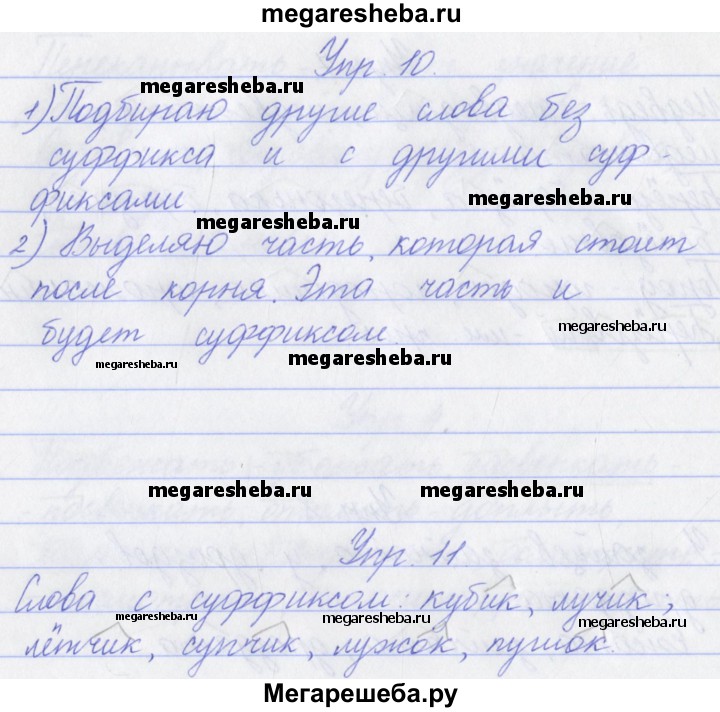 megaresheba.ru
Упр. 10.
megaresheba.ru
1) Подбираю другие слова без
суффикса и с другими суф-
фиксами.
megaresheba.ru
megaresheba.ru
2) Выделяю часть, которая стоит
после корня. Эта часть и
будет суффиксом.
megaresheba.ru
megaresheba.ru
megaresheba.ru
megaresheba.ru
megaresheba.ru
Упр. 11
Слова с суффиксом: кубик, лучик;
megaresheba.ru
megaresheba.ru
megaresheba.ru
лётчик, супчик, лужок, пушок.
Мегарешеба.ру